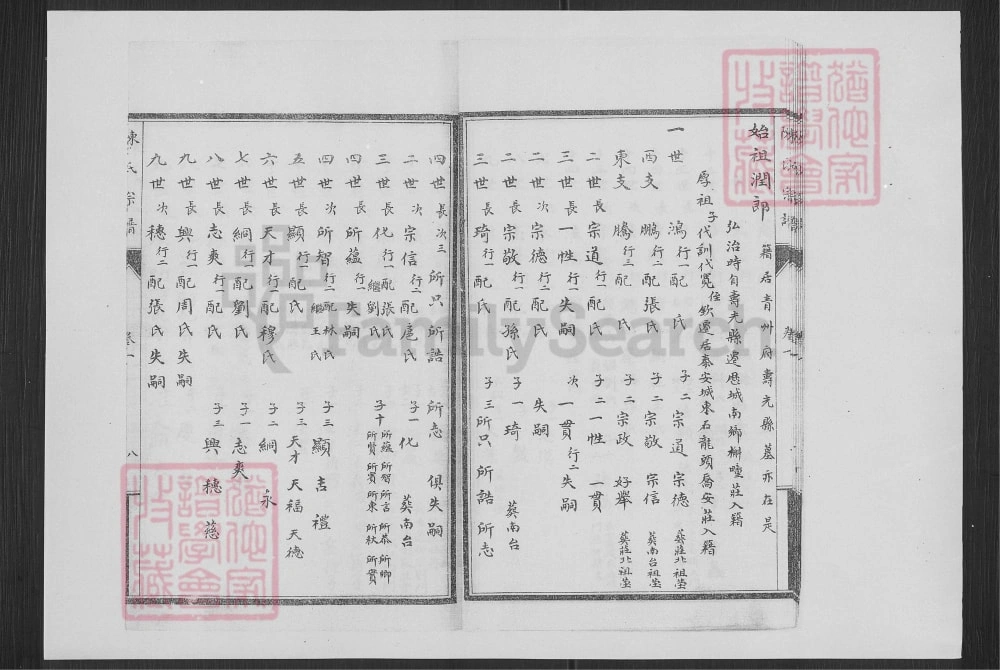 始祖潤郎
籍居青州府壽光縣墓亦在是
弘治時自壽光縣遷歷城南鄉槲疃莊入籍
厚祖子代訓代寬住欽遷居泰安城東石龍頭喬安莊入籍
一世鴻行一配 氏 子二宗道 宗德 葬莊北祖塋
西支鵬行二配張氏 子二宗敬 宗信 葬南台祖塋
東支騰行三配 氏 子二宗政 好舉 葬莊北祖塋
二世長宗道行一配 氏 子二一性 一貫
三世長一性行一失嗣 次一貫行二失嗣
二世次宗德行二配 氏 失嗣
二世長宗敬行一配孫氏 子一琦 葬南台
三世長琦行一配 氏 子三所只 所誥 所志
四世長次三所只 所誥 所志 俱失嗣
二世次宗信行二配扈氏 子一化 葬南台
三世長化行一配張氏繼劉氏 子十所蘊 所智 所言 所恭 所卿 所賢 所實 所東 所秋 所賞
四世長所蘊行一失嗣
四世次所智行二配林氏繼王氏 子三顯 吉 禮
五世長顯行一配 氏 子三天才 天福 天德
六世長天才行一配穆氏 子二絅 永
七世長絅行一配劉氏 子一志爽
八世長志爽行一配 氏 子三興 穗 慈
九世長興行一配周氏失嗣
九世次穗行二配張氏失嗣
陳氏宗譜 卷一 八
FamilySearch